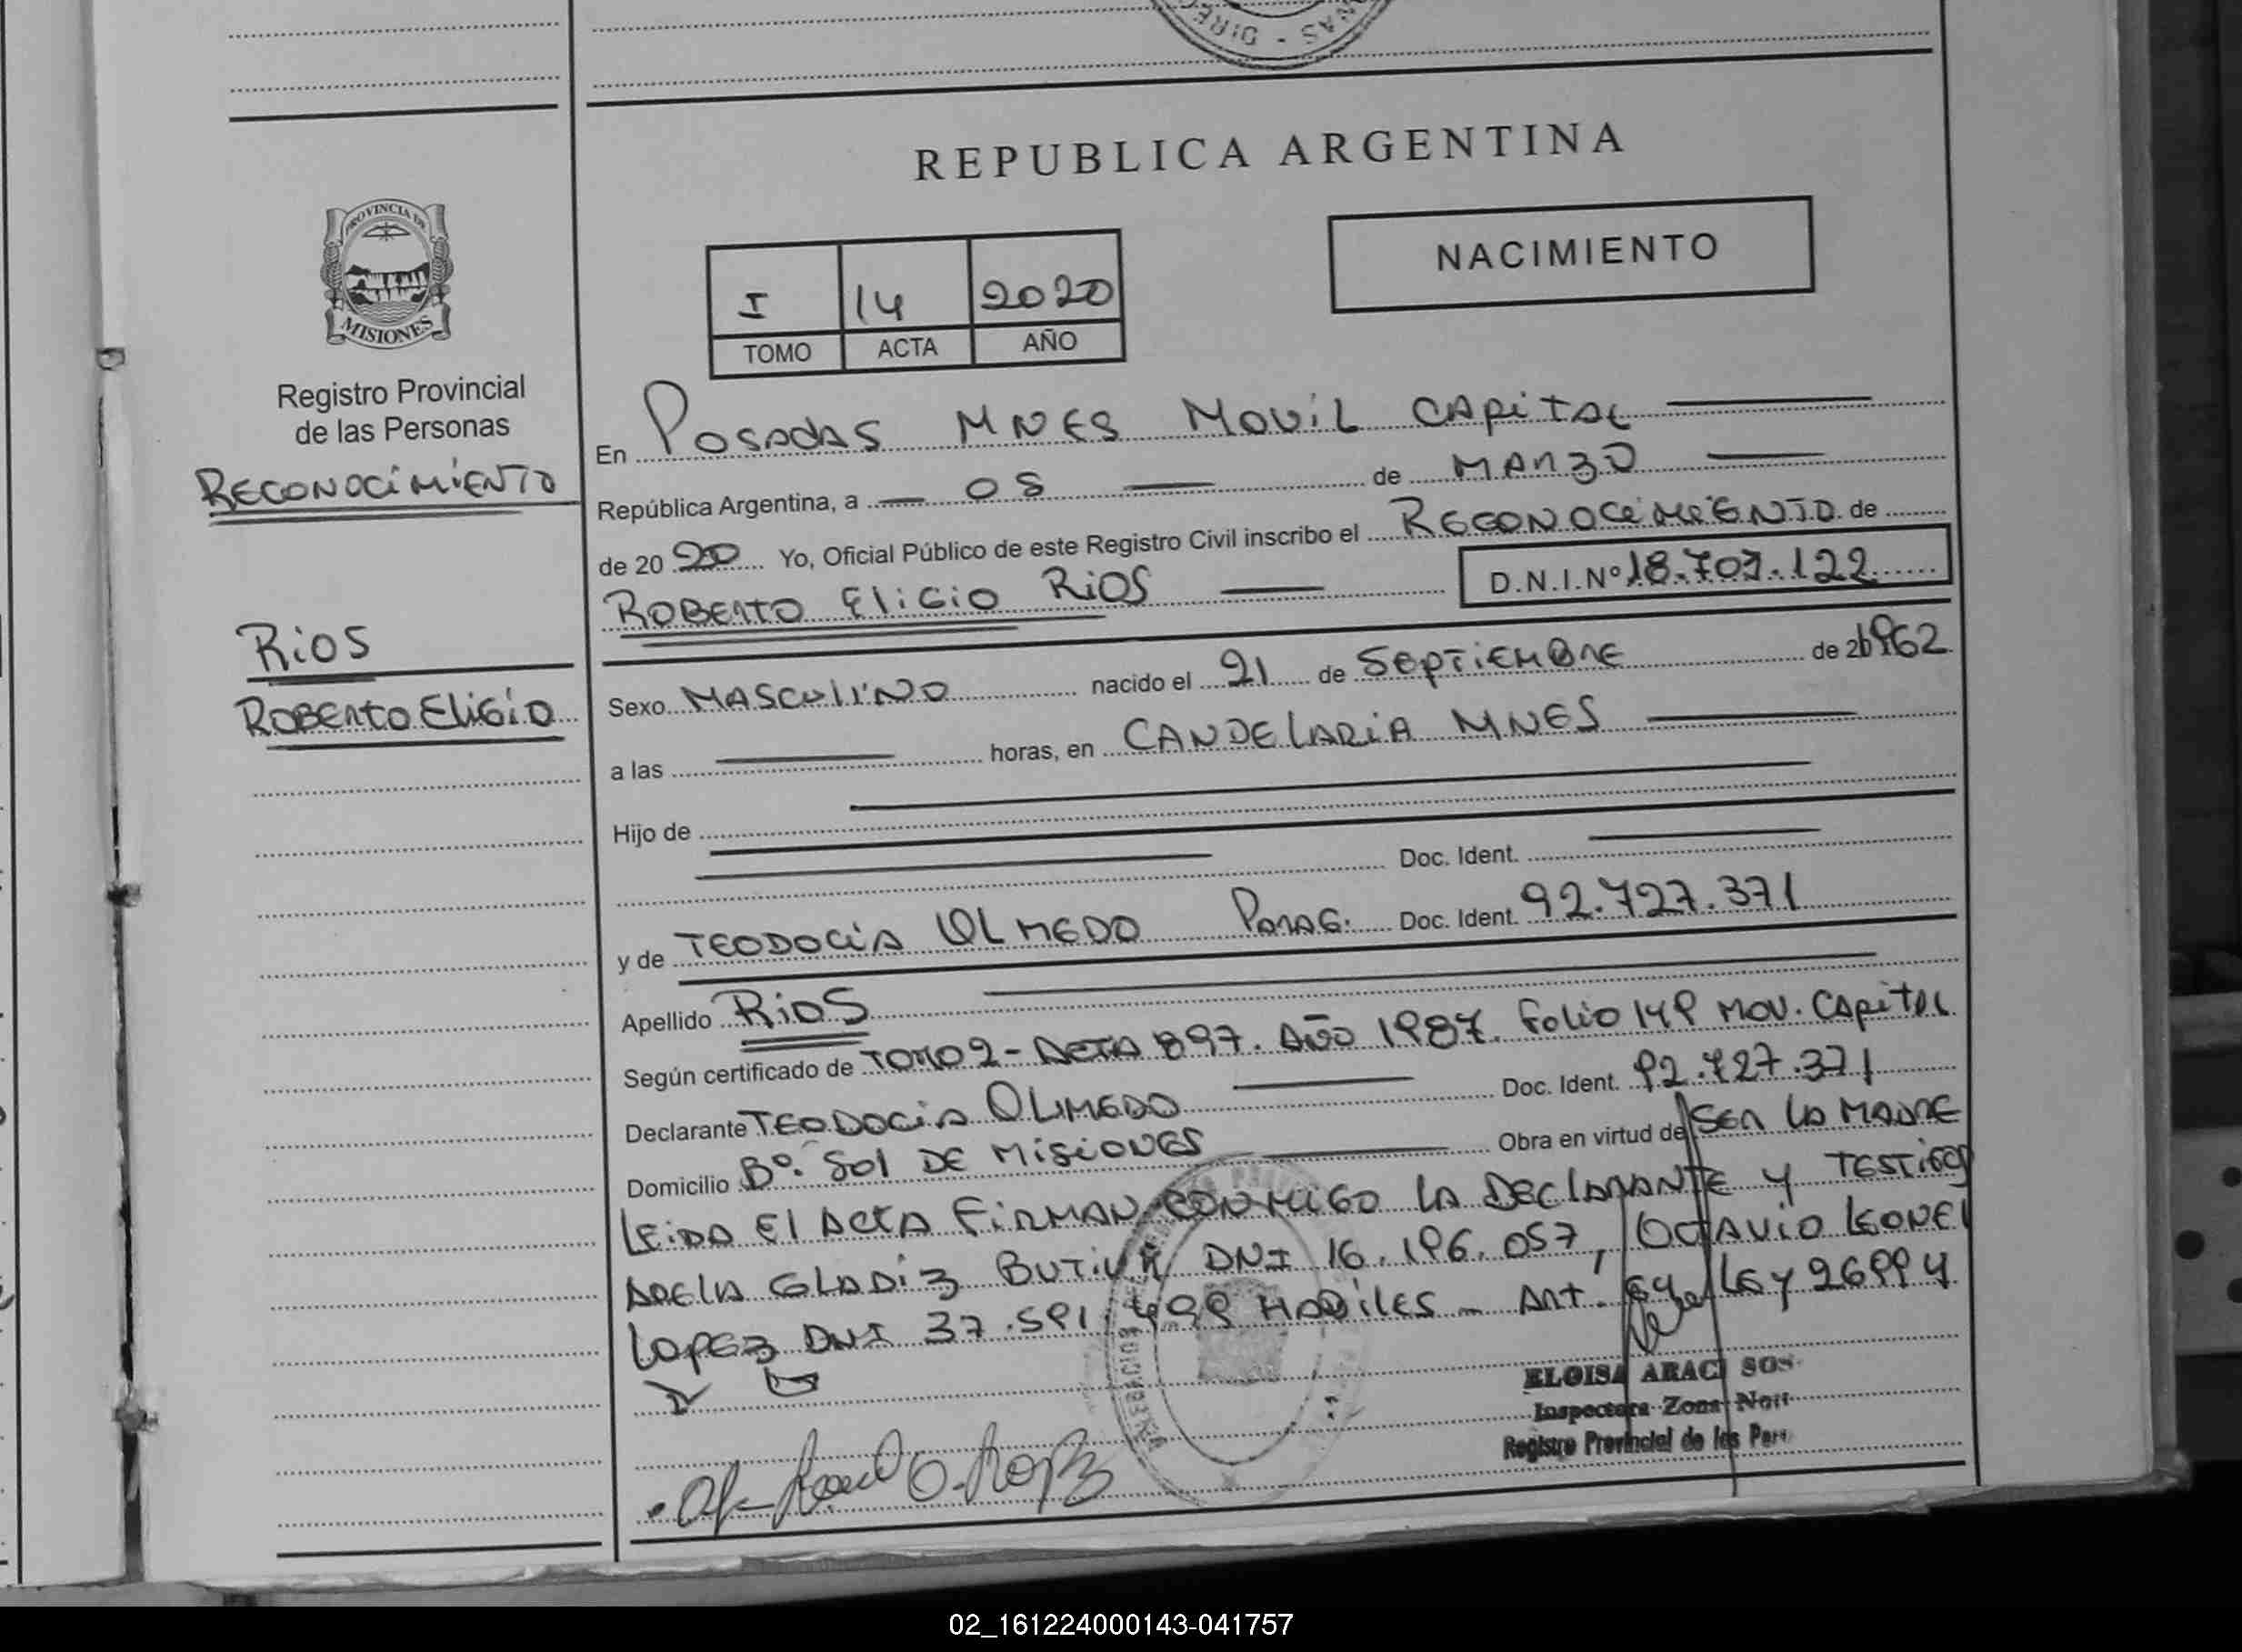 DIREC
NAS -
REPUBLICA ARGENTINA
NACIMIENTO
I 14 2020
TOMO ACTA AÑO
PROVINCIA DE
MISIONES
Registro Provincial
de las Personas
RECONOCIMIENTO
RIOS
ROBERTO ELIGIO
En POSADAS MNES MOVIL CAPITAL
República Argentina, a 05 de MARZO
de 20 20 Yo, Oficial Público de este Registro Civil inscribo el RECONOCIMIENTO de
ROBERTO ELIGIO RIOS D.N.I.Nº 18.707.122
Sexo MASCULINO nacido el 21 de SEPTIEMBRE de 1962
a las horas, en CANDELARIA MNES
Hijo de
Doc. Ident.
y de TEODOCIA OLMEDO PARAG. Doc. Ident. 92.727.371
Apellido RIOS
Según certificado de TOMO 2 - ACTA 897. AÑO 1987. FOLIO 149 MOV. CAPITAL
Declarante TEODOCIA OLMEDO Doc. Ident. 92.727.371
Domicilio Bº. SOL DE MISIONES Obra en virtud de SER LA MADRE
LEIDA EL ACTA FIRMAN CONMIGO LA DECLARANTE Y TESTIGOS
ADELA GLADIZ DNI 16.196.057, OCTAVIO LEONEL
LOPEZ DNI 37.591.499 HABILES - ART. 64 LEY 26994
ELOISA ARACI SOS
Inspectora Zona Nort
Registro Provincial de las Pers
O. Lopez
02_161224000143-041757